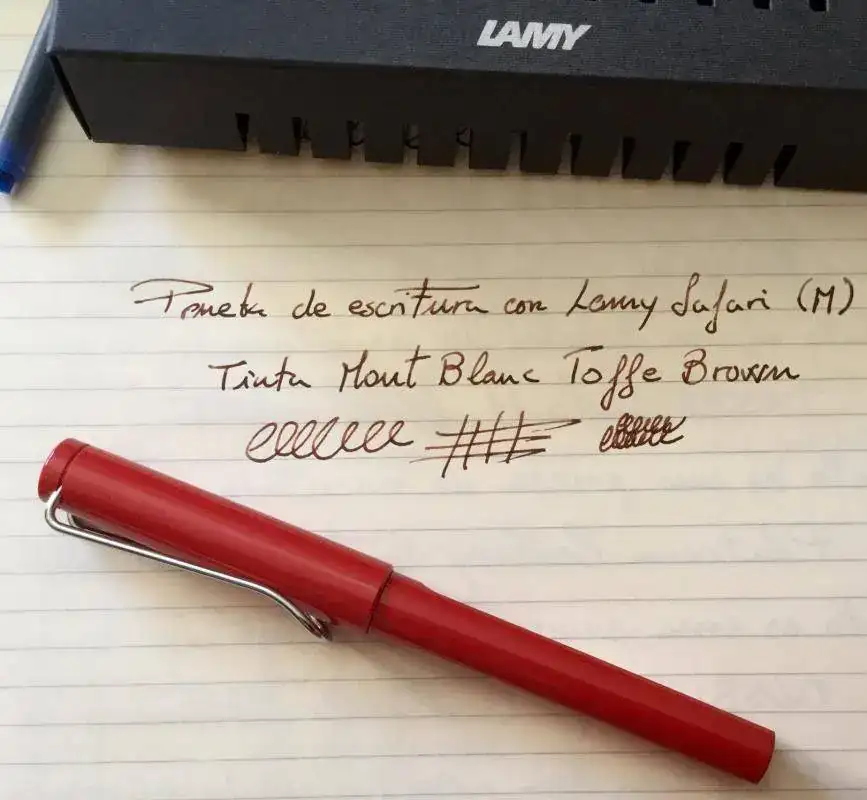 LAMY
Prueba de escritura con Lamy Safari (M)
Tinta Mont Blanc Toffe Brown